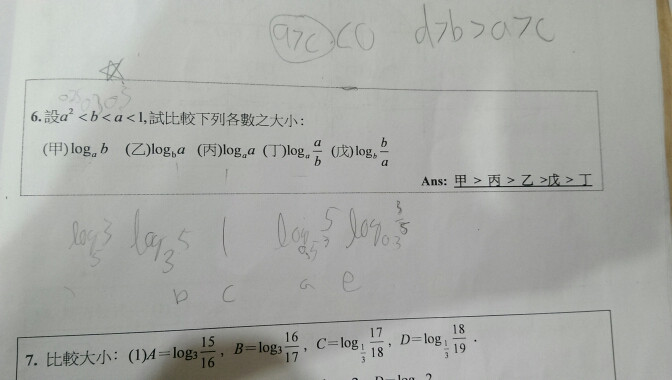 a>c <0 d>b>a>c
6. 設a² < b < a < 1, 試比較下列各數之大小:
(甲) logₐ b (乙) log_b a (丙) logₐ a (丁) logₐ a/b (戊) log_b b/a
Ans: 甲 > 丙 > 乙 >戊 > 丁
log₅ 3 log₃ 5 1
b c a e
7. 比較大小: (1)A=log₃ 15/16, B=log₃ 16/17, C=log_{1/3} 17/18, D=log_{1/3} 18/19.